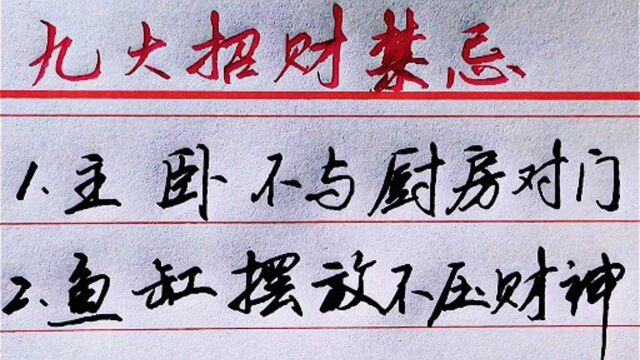 九大招财禁忌
1.主卧不与厨房对门
2.鱼缸摆放不压财神